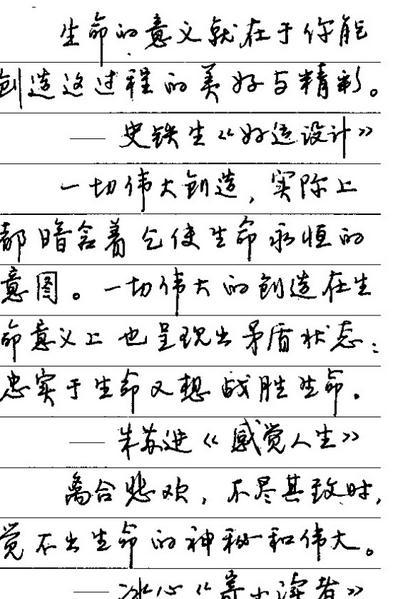 生命的意义就在于你能
创造这过程的美好与精彩。
——史铁生《好运设计》
一切伟大创造，实际上
都暗含着乞使生命永恒的
意图。一切伟大的创造在生
命意义上也呈现出矛盾状态：
忠实于生命又想战胜生命。
——朱苏进《感觉人生》
离合悲欢，不尽其致时，
觉不出生命的神秘和伟大。
——冰心《寄小读者》